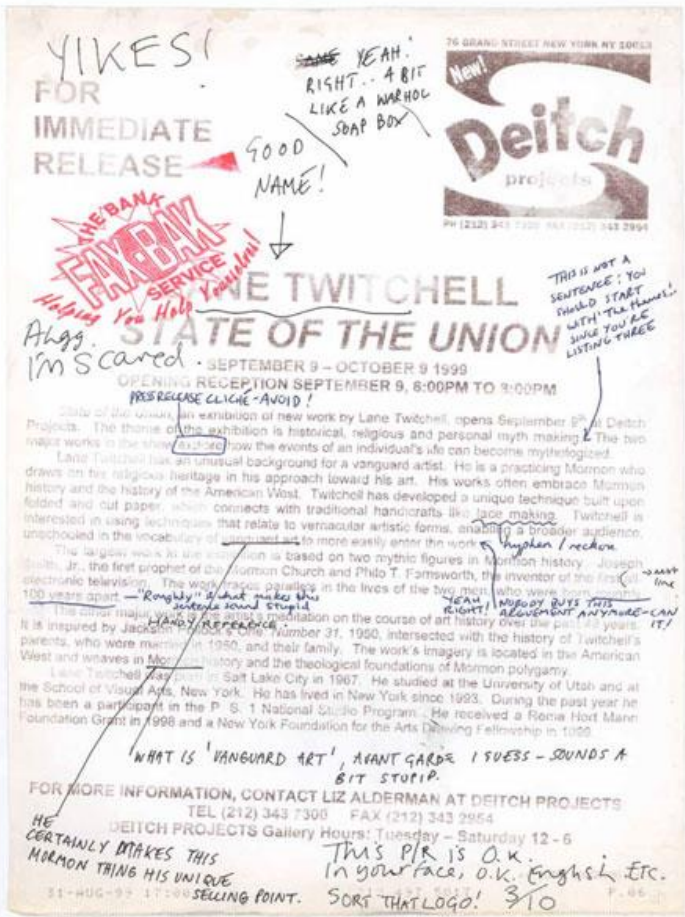 YIKES!
FOR
IMMEDIATE
RELEASE
SAME YEAH!
RIGHT.. A BIT
LIKE A WARHOL
SOAP BOX
GOOD
NAME!
76 GRAND STREET NEW YORK NY 10013
New!
Deitch
projects
PH (212) 343 7300 FAX (212) 343 2954
THE BANK
FAX-BAK
SERVICE
Helping You Help Yourselves!
LANE TWITCHELL
STATE OF THE UNION
THIS IS NOT A
SENTENCE! YOU
SHOULD START
WITH 'The themes'
SINCE YOU'RE
LISTING THREE
Ahgg.
I'm Scared.
SEPTEMBER 9 – OCTOBER 9 1999
OPENING RECEPTION SEPTEMBER 9, 6:00PM TO 8:00PM
PRESS RELEASE CLICHÉ - AVOID!
State of the Union, an exhibition of new work by Lane Twitchell, opens September 9th at Deitch
Projects. The theme of the exhibition is historical, religious and personal myth making. The two
major works in the show explore how the events of an individual's life can become mythologized.
Lane Twitchell has an unusual background for a vanguard artist. He is a practicing Mormon who
draws on his religious heritage in his approach toward his art. His works often embrace Mormon
history and the history of the American West. Twitchell has developed a unique technique built upon
folded and cut paper, which connects with traditional handicrafts like lace making. Twitchell is
interested in using techniques that relate to vernacular artistic forms, enabling a broader audience,
unschooled in the vocabulary of vanguard art to more easily enter the work.
hyphen I reckon
The largest work in the exhibition is based on two mythic figures in Mormon history. Joseph
Smith, Jr., the first prophet of the Mormon Church and Philo T. Farnsworth, the inventor of the first
electronic television. The work traces parallels in the lives of the two men, who were born roughly
→ next
line
100 years apart.
"Roughly" is what makes this
sentence sound stupid
YEAH
RIGHT!
NOBODY BUYS THIS
ARGUEMENT ANYMORE - CAN
IT!
The other major work is the artist's meditation on the course of art history over the past years.
HANDY REFERENCE!
It is inspired by Jackson Pollock's One: Number 31, 1950, intersected with the history of Twitchell's
parents, who were married in 1950, and their family. The work's imagery is located in the American
West and weaves in Mormon history and the theological foundations of Mormon polygamy.
Lane Twitchell was born in Salt Lake City in 1967. He studied at the University of Utah and at
the School of Visual Arts, New York. He has lived in New York since 1993. During the past year he
has been a participant in the P. S. 1 National Studio Program. He received a Rema Hort Mann
Foundation Grant in 1998 and a New York Foundation for the Arts Drawing Fellowship in 1999.
WHAT IS 'VANGUARD ART', AVANT GARDE I GUESS - SOUNDS A
BIT STUPID.
FOR MORE INFORMATION, CONTACT LIZ ALDERMAN AT DEITCH PROJECTS
TEL (212) 343 7300 FAX (212) 343 2954
DEITCH PROJECTS Gallery Hours: Tuesday – Saturday 12 - 6
HE
CERTAINLY MAKES THIS
MORMON THING HIS UNIQUE
SELLING POINT.
This P/R is O.K.
In your face, O.K. English ETC.
SORT THAT LOGO! 3/10
31-AUG-99 17:00
P.06